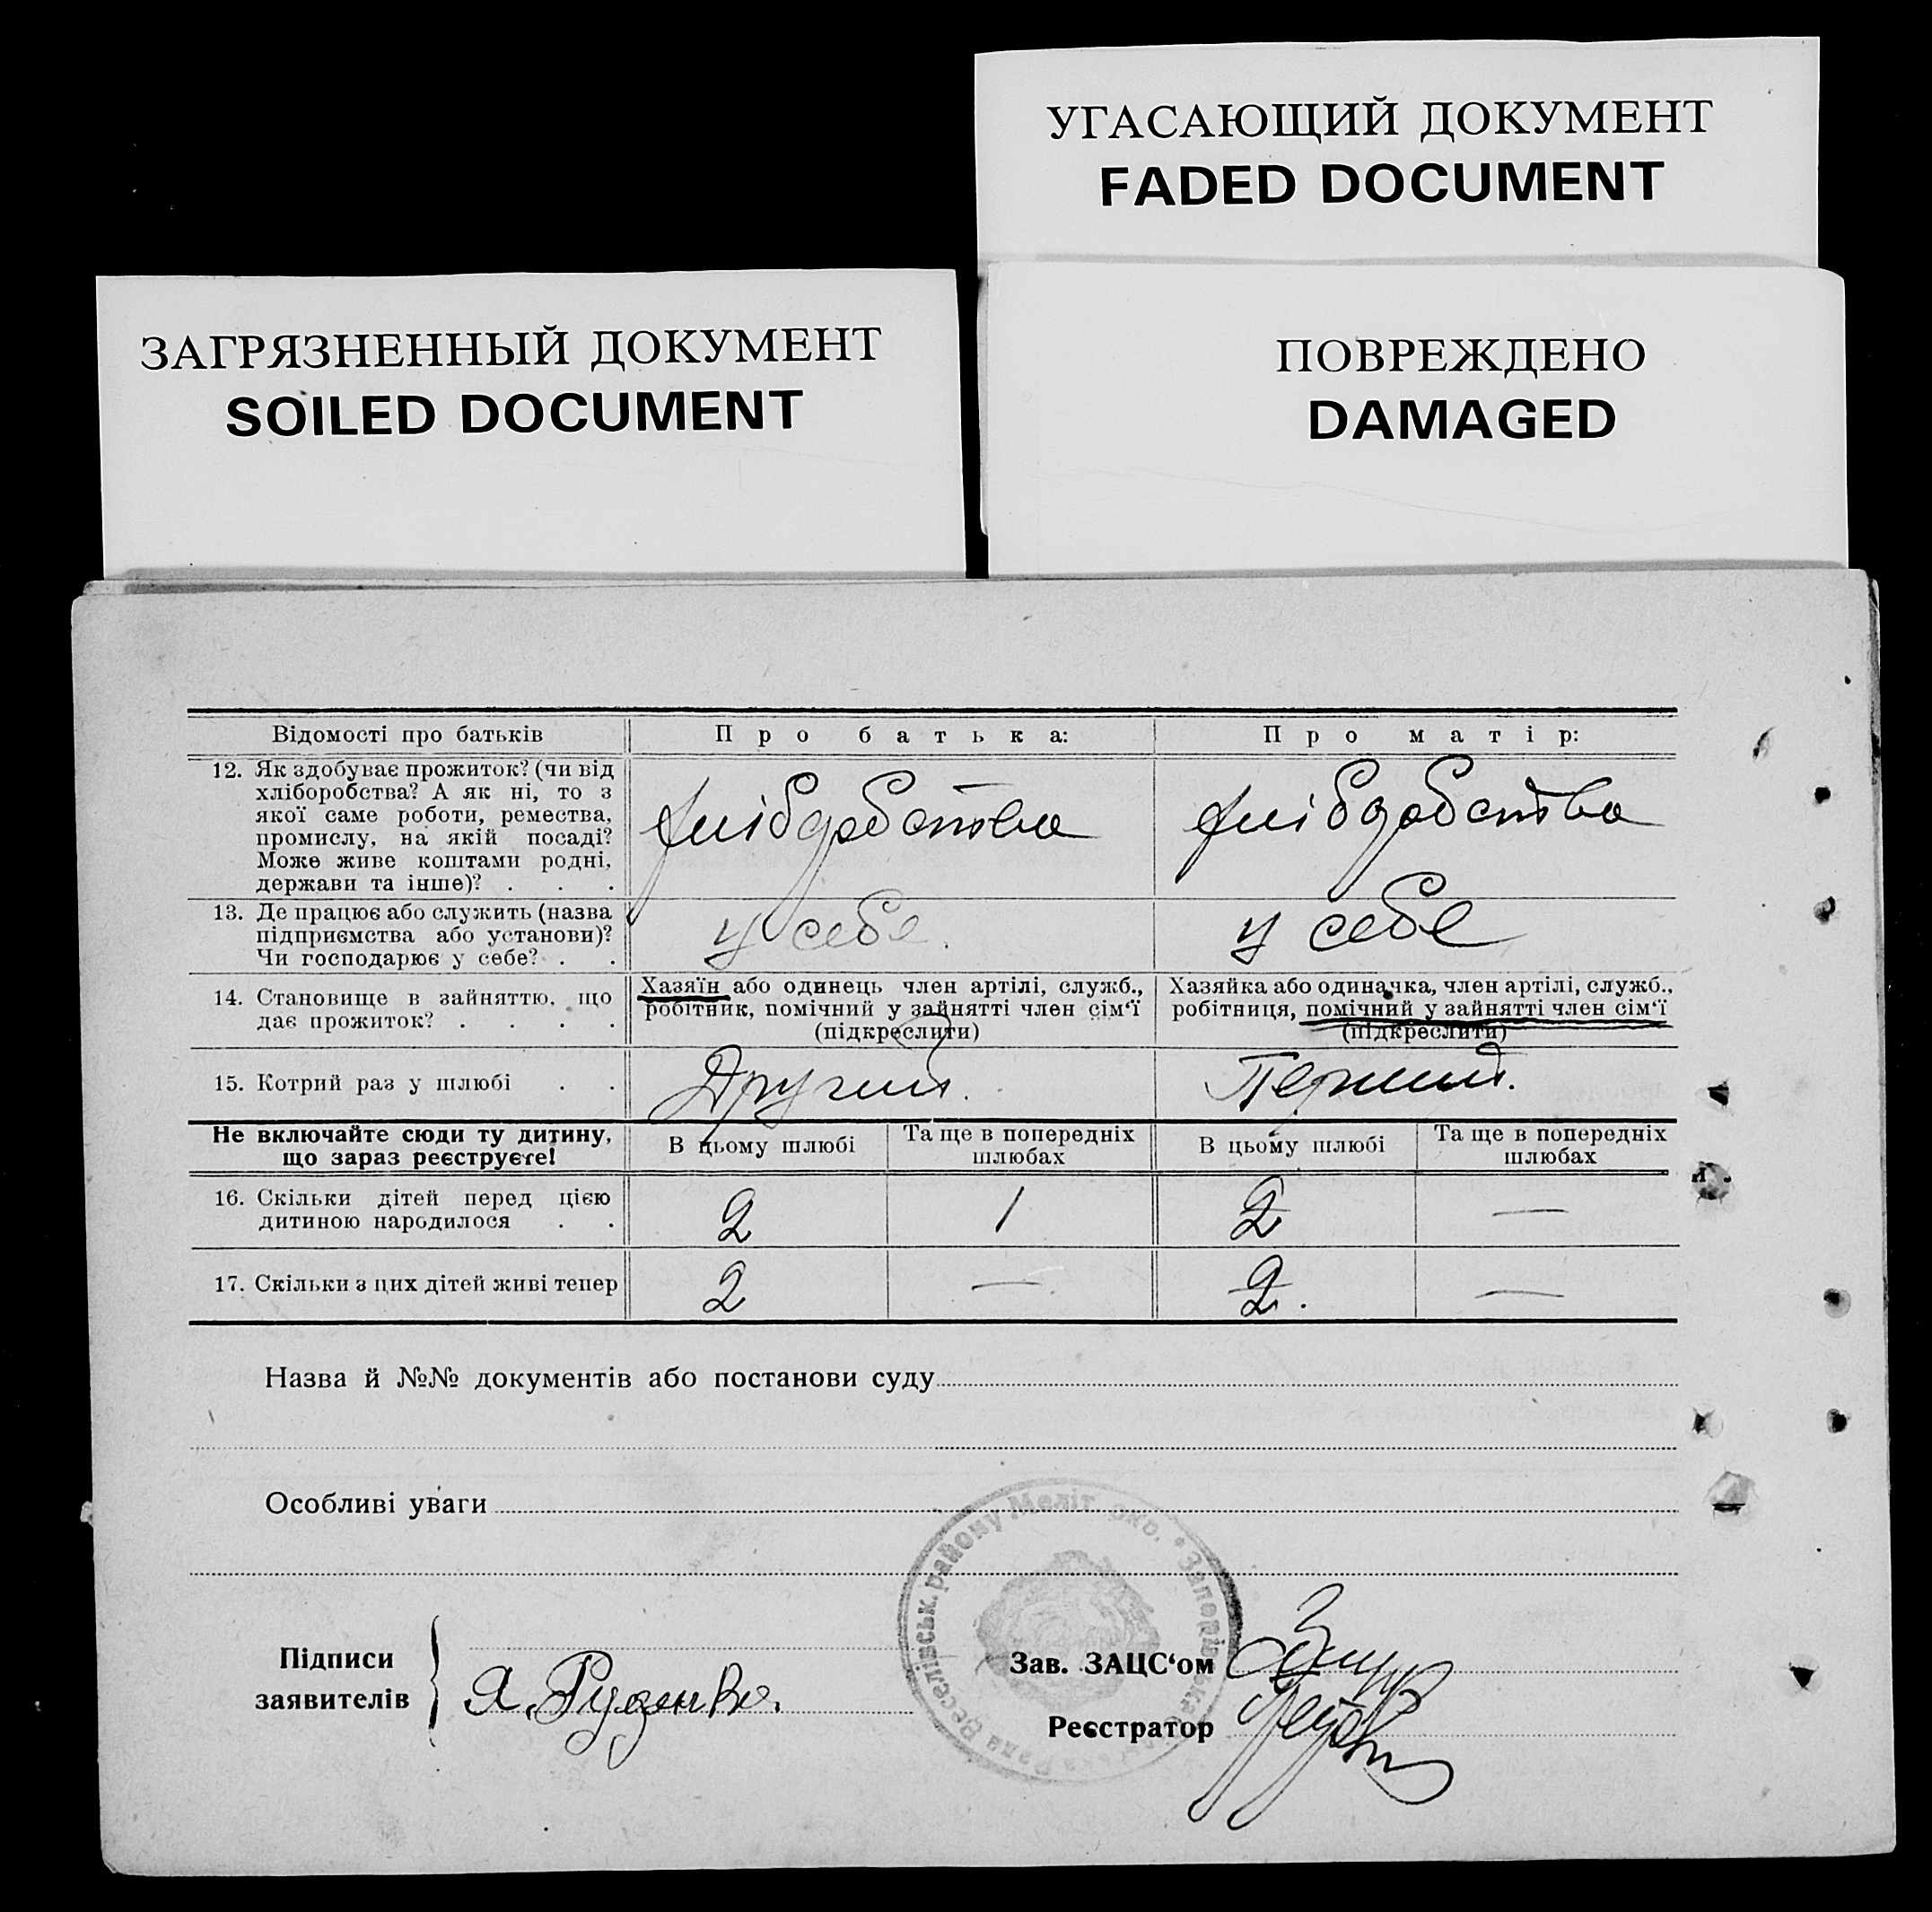 УГАСАЮЩИЙ ДОКУМЕНТ
FADED DOCUMENT
ЗАГРЯЗНЕННЫЙ ДОКУМЕНТ
SOILED DOCUMENT
ПОВРЕЖДЕНО
DAMAGED
Відомості про батьків
Про батька:
Про матір:
12. Як здобуває прожиток? (чи від
хліборобства? А як ні, то з
якої саме роботи, ремества,
промислу, на якій посаді?
Може живе коштами родні,
держави та інше)? . . .
13. Де працює або служить (назва
підприємства або установи)?
Чи господарює у себе? . .
у себе.
у себе
14. Становище в зайняттю, що
дає прожиток? . . . .
Хазяїн або одинець член артілі, служб.,
робітник, помічний у зайнятті член сім‘ї
(підкреслити)
Хазяйка або одиначка, член артілі, служб.,
робітниця, помічний у зайнятті член сім‘ї
(підкреслити)
15. Котрий раз у шлюбі . .
Другий.
Перший.
Не включайте сюди ту дитину,
що зараз реєструєте!
В цьому шлюбі
Та ще в попередніх
шлюбах
В цьому шлюбі
Та ще в попередніх
шлюбах
16. Скільки дітей перед цією
дитиною народилося . .
2
1
2
—
17. Скільки з цих дітей живі тепер
2
—
2.
—
Назва й №№ документів або постанови суду
Особливі уваги
Веселівськ. району Меліт. окр.
Підписи
заявителів
Я. Руденко.
Зав. ЗАЦС‘ом
Реєстратор